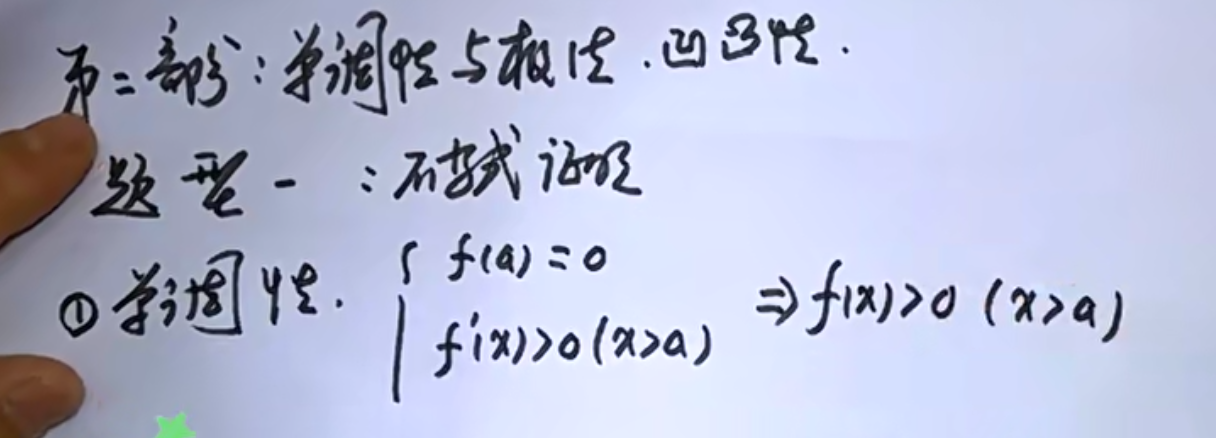 第二部分：单调性与极值.凹凸性.
题型一：不等式证明
① 单调性. { f(a)=0
f'(x)>0(x>a) ⇒f(x)>0 (x>a)